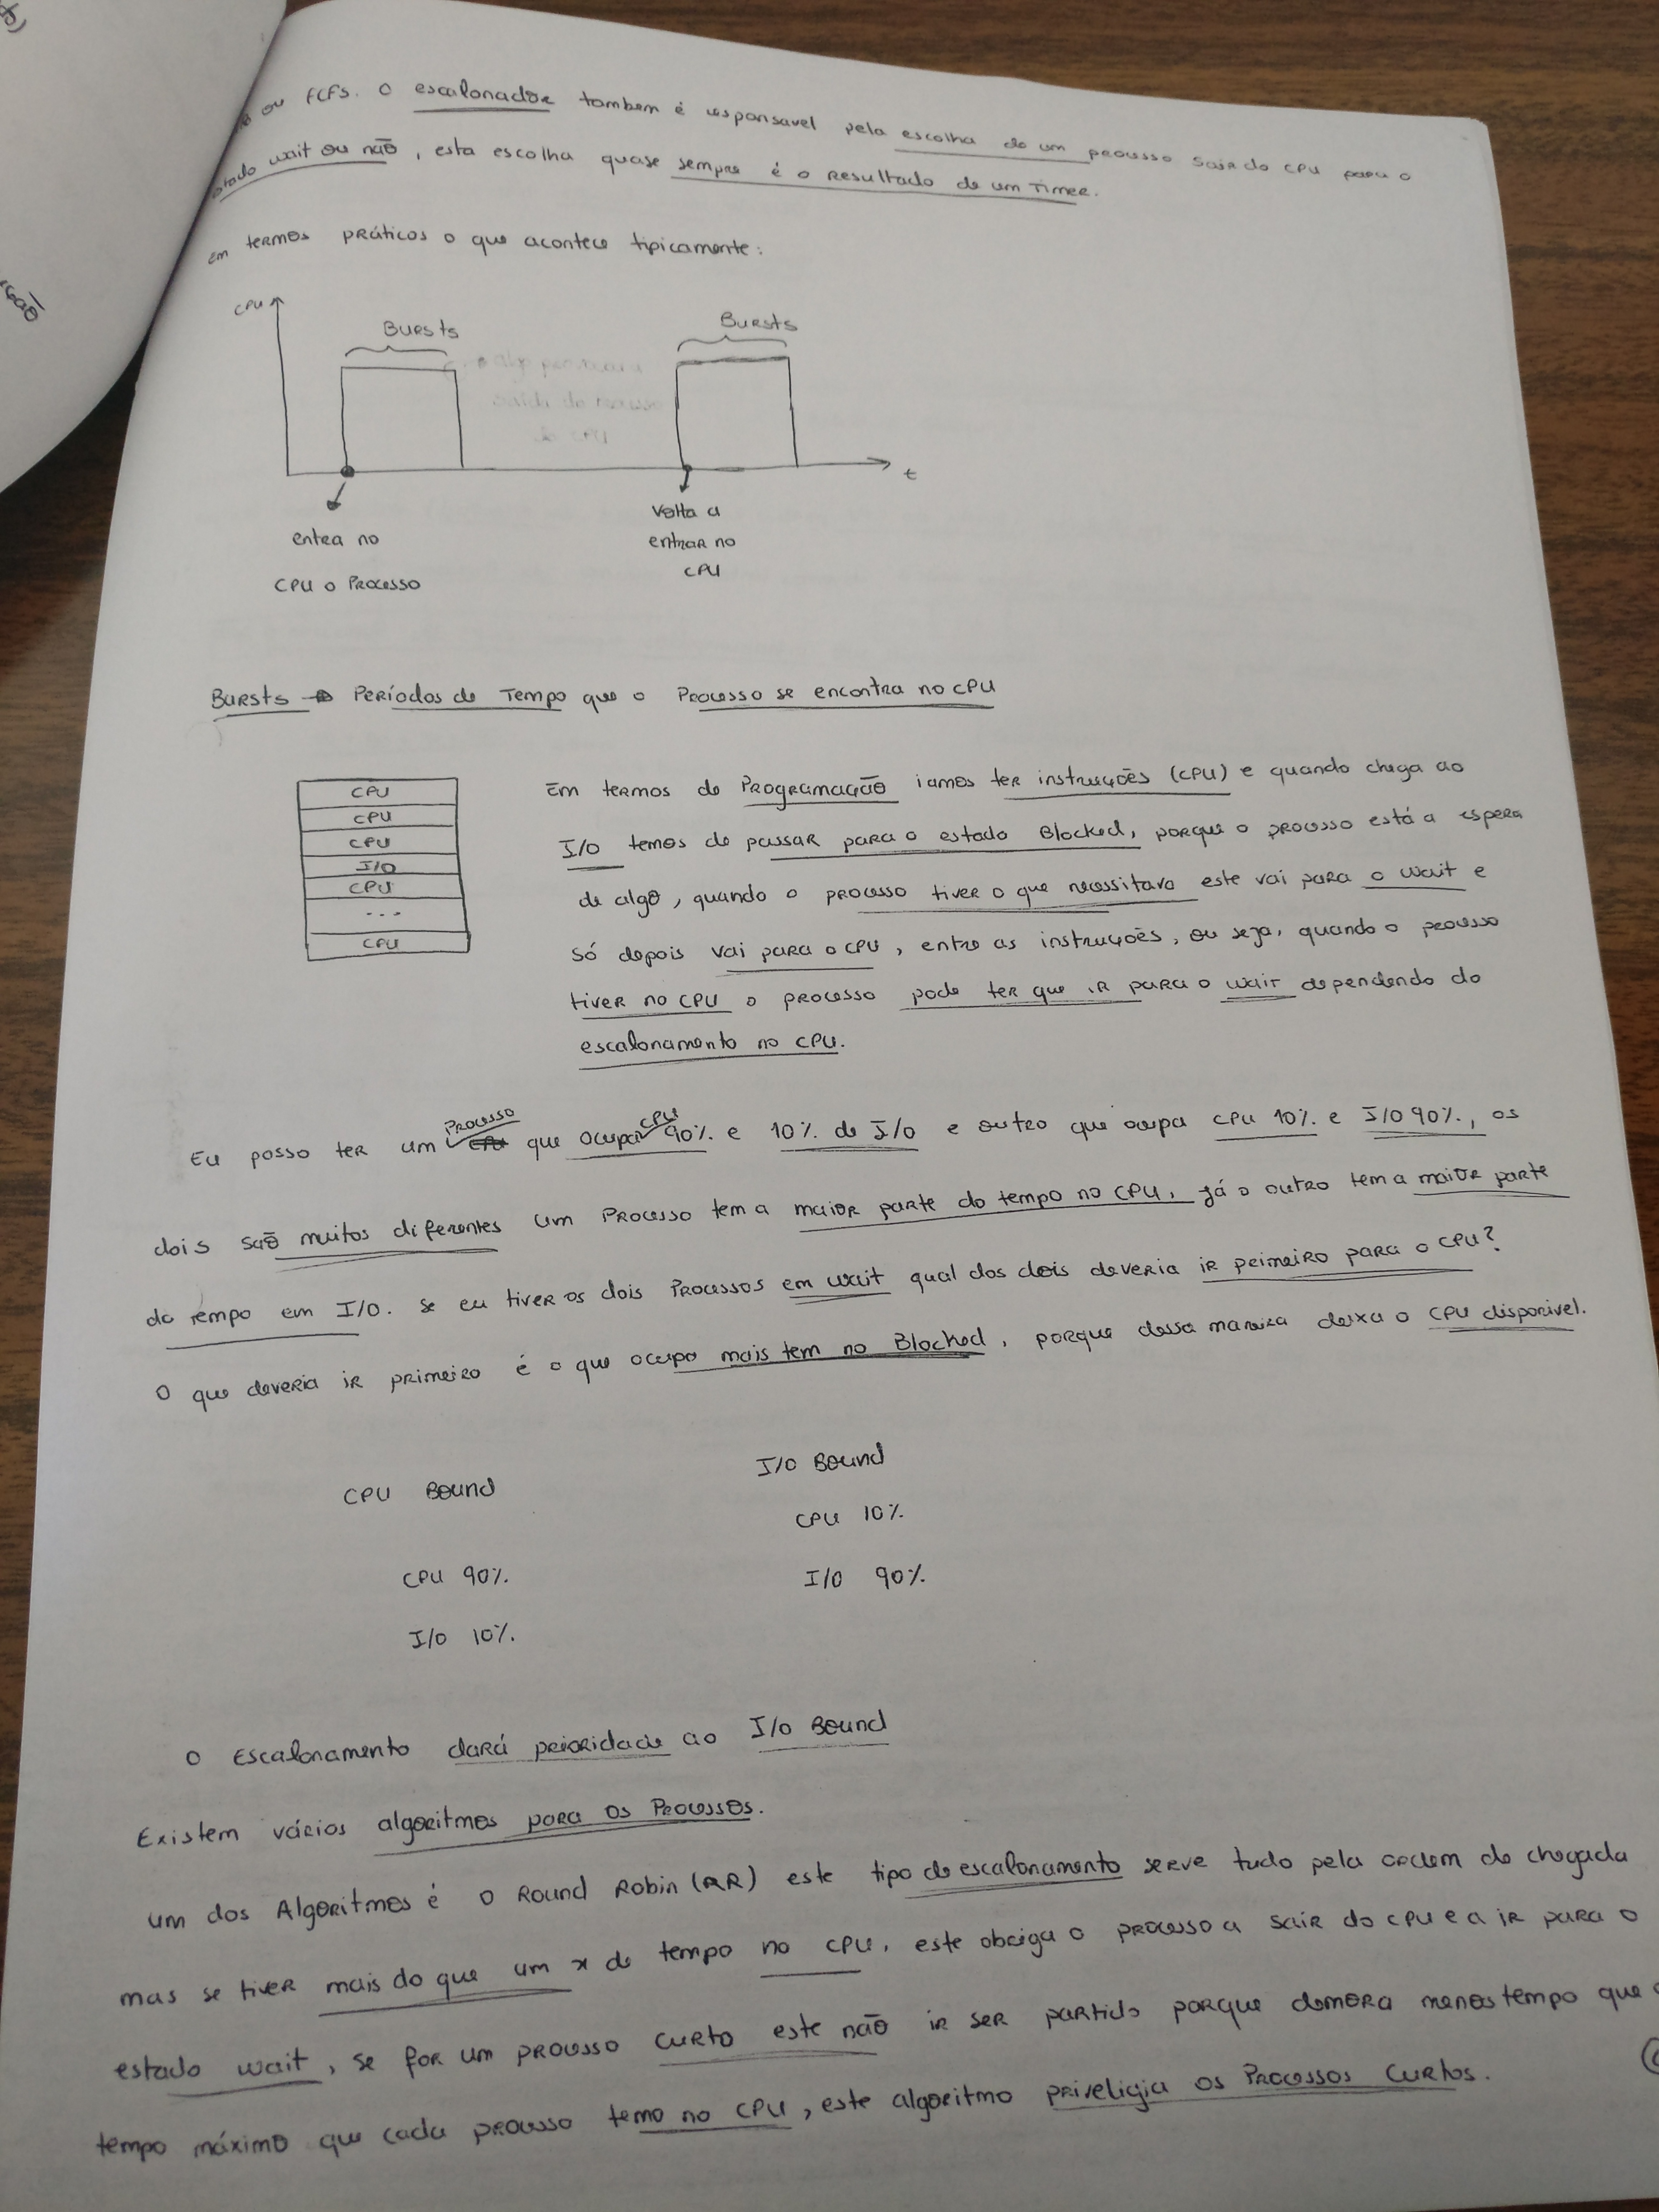 ou FCFS. O escalonador tambem é responsavel pela escolha de um processo sair do CPU para o
estado wait ou não, esta escolha quase sempre é o resultado de um Timer.
Em termos práticos o que acontece tipicamente:
CPU
Bursts
Bursts
t
entra no
CPU o Processo
Volta a
entrar no
CPU
Bursts → Períodos de Tempo que o Processo se encontra no CPU
CPU
CPU
CPU
I/O
CPU
...
CPU
Em termos de Programação iamos ter instruções (CPU) e quando chega ao
I/O temos de passar para o estado Blocked, porque o processo está a espera
de algo, quando o processo tiver o que necessitava este vai para o wait e
só depois vai para o CPU, entre as instruções, ou seja, quando o processo
tiver no CPU o processo pode ter que ir para o wait dependendo do
escalonamento no CPU.
Eu posso ter um Processo que ocupa CPU 90% e 10% de I/O e outro que ocupa CPU 10% e I/O 90%, os
dois são muitos diferentes um Processo tem a maior parte do tempo no CPU, já o outro tem a maior parte
do tempo em I/O. Se eu tiver os dois Processos em wait qual dos dois deveria ir primeiro para o CPU?
O que deveria ir primeiro é o que ocupa mais tem no Blocked, porque dessa maneira deixa o CPU disponivel.
CPU Bound
CPU 90%
I/O 10%
I/O Bound
CPU 10%
I/O 90%
O Escalonamento dará prioridade ao I/O Bound
Existem vários algoritmos para os Processos.
um dos Algoritmos é o Round Robin (RR) este tipo de escalonamento serve tudo pela ordem de chegada
mas se tiver mais do que um x de tempo no CPU, este obriga o processo a sair do CPU e a ir para o
estado wait, se for um processo curto este não ir ser partido porque demora menos tempo que o
tempo máximo que cada processo temo no CPU, este algoritmo priveligia os Processos Curtos.